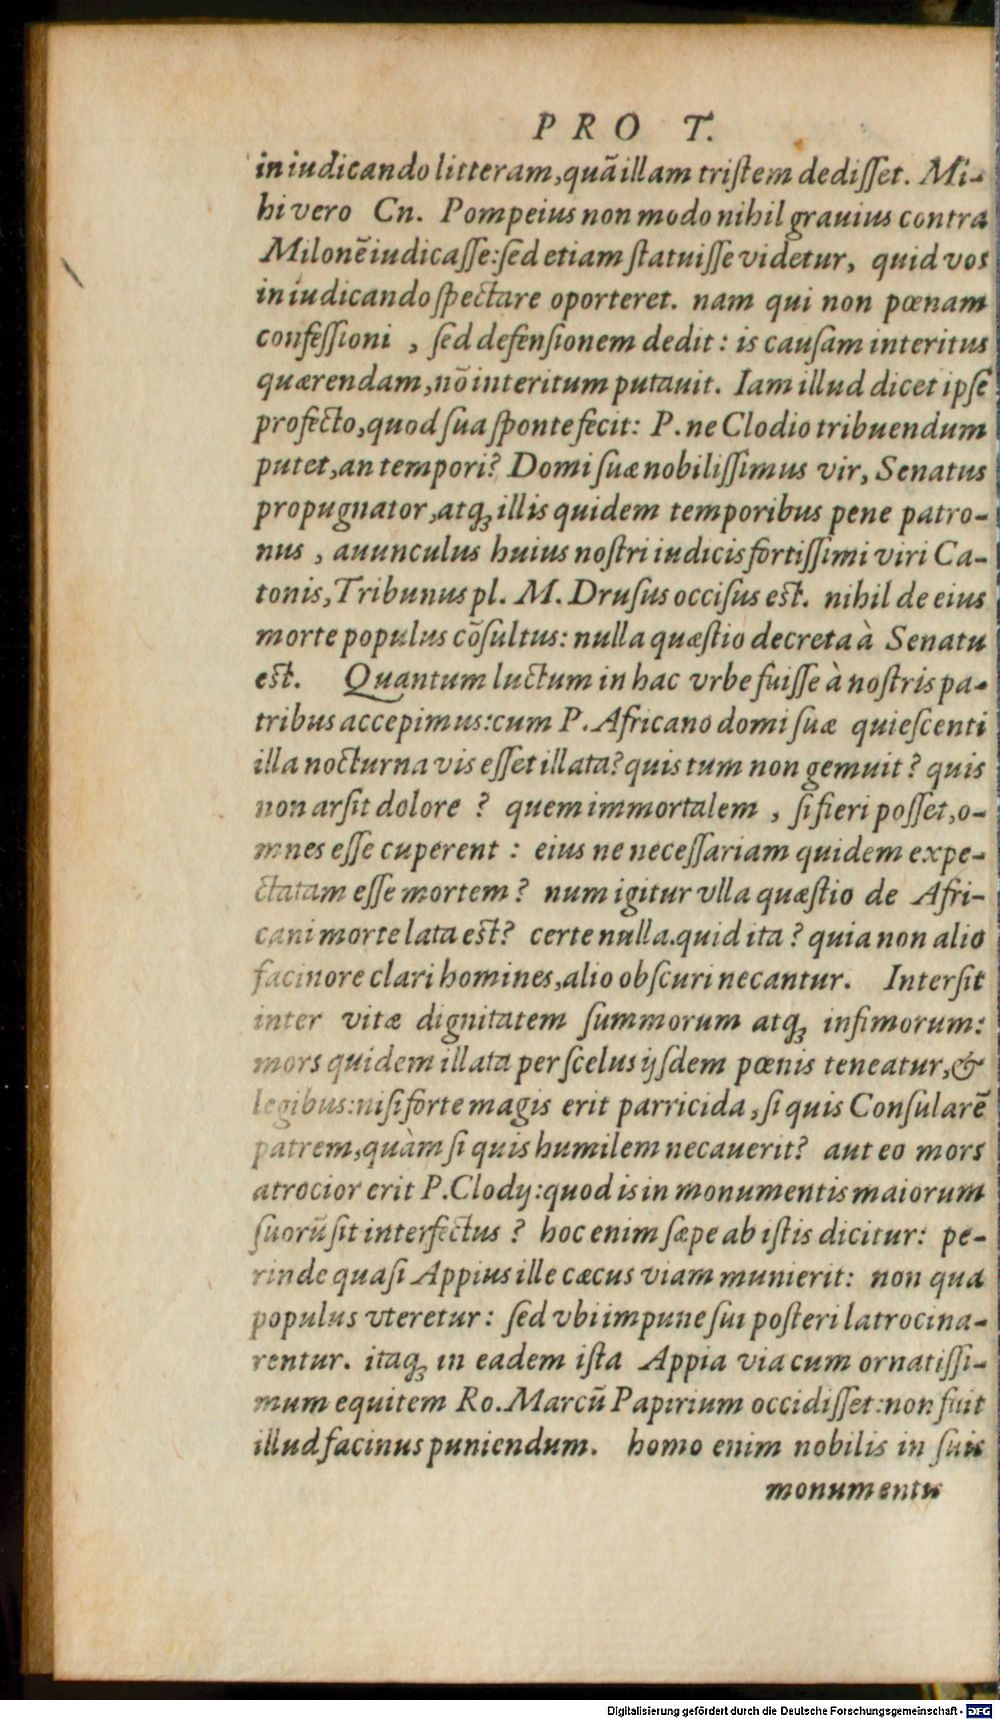 PRO T.
in iudicando litteram, quã illam tristem dedisset. Mi-
hi vero Cn. Pompeius non modo nihil grauius contra
Milonẽ iudicasse: sed etiam statuisse videtur, quid vos
in iudicando spectare oporteret. nam qui non pœnam
confessioni, sed defensionem dedit: is causam interitus
quærendam, nõ interitum putauit. Iam illud dicet ipse
profecto, quod sua sponte fecit: P. ne Clodio tribuendum
putet, an tempori? Domi suæ nobilissimus vir, Senatus
propugnator, atq; illis quidem temporibus pene patro-
nus, auunculus huius nostri iudicis fortissimi viri Ca-
tonis, Tribunus pl. M. Drusus occisus est. nihil de eius
morte populus cõsultus: nulla quæstio decreta à Senatu
est. Quantum luctum in hac vrbe fuisse à nostris pa-
tribus accepimus: cum P. Africano domi suæ quiescenti
illa nocturna vis esset illata? quis tum non gemuit? quis
non arsit dolore? quem immortalem, si fieri posset, o-
mnes esse cuperent: eius ne necessariam quidem expe-
ctatam esse mortem? num igitur vlla quæstio de Afri-
cani morte lata est? certe nulla. quid ita? quia non alio
facinore clari homines, alio obscuri necantur. Intersit
inter vitæ dignitatem summorum atq; infimorum:
mors quidem illata per scelus ijsdem pœnis teneatur, &
legibus: nisi forte magis erit parricida, si quis Consularẽ
patrem, quàm si quis humilem necauerit? aut eo mors
atrocior erit P. Clodij: quod is in monumentis maiorum
suorũ sit interfectus? hoc enim sæpe ab istis dicitur: pe-
rinde quasi Appius ille cæcus viam munierit: non qua
populus vteretur: sed vbi impune sui posteri latrocina-
rentur. itaq; in eadem ista Appia via cum ornatissi-
mum equitem Ro. Marcũ Papirium occidisset: non fuit
illud facinus puniendum. homo enim nobilis in suis
monumentis
Digitalisierung gefördert durch die Deutsche Forschungsgemeinschaft - DFG